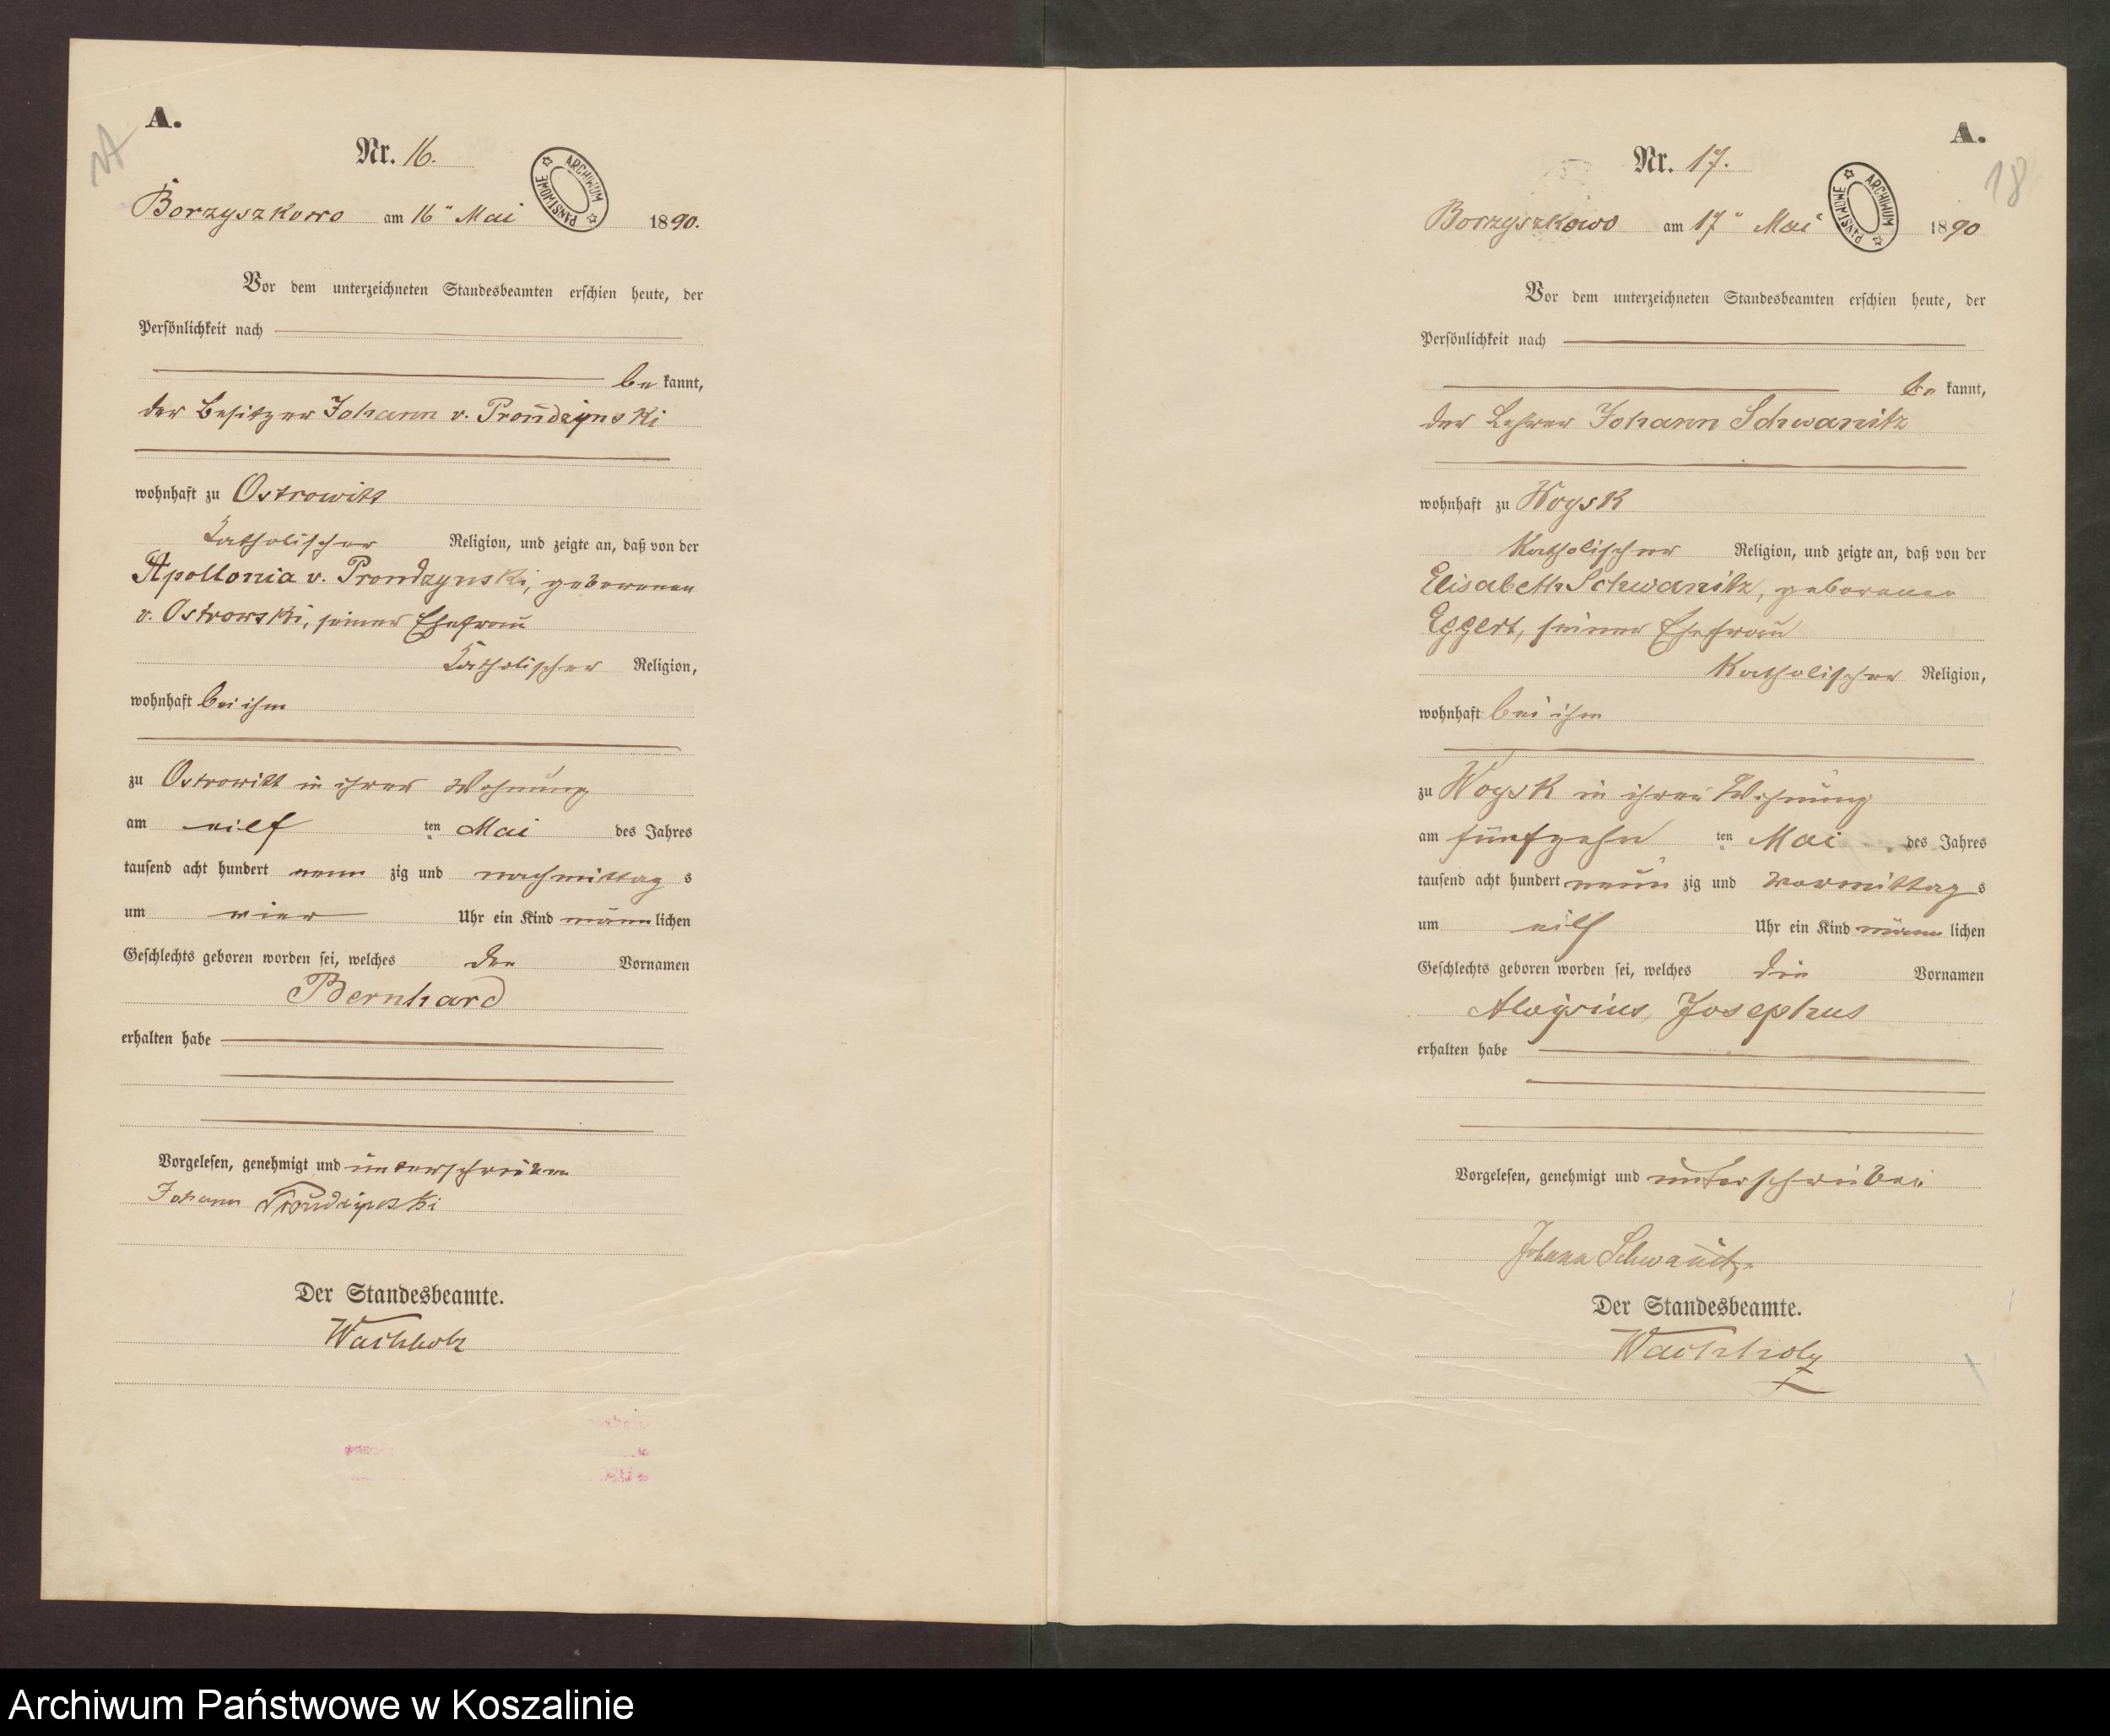 A.
Nr. 16.
ARCHIWUM PAŃSTWOWE
Borzyszkowo am 16" Mai 1890.
Vor dem unterzeichneten Standesbeamten erschien heute, der
Persönlichkeit nach
be kannt,
der Besitzer Johann v. Prondzynski
wohnhaft zu Ostrowitt
katholischer Religion, und zeigte an, daß von der
Apollonia v. Prondzynski, geborenen
v. Ostrowski, seiner Ehefrau
katholischer Religion,
wohnhaft bei ihm
zu Ostrowitt in ihrer Wohnung
am eilf ten Mai des Jahres
tausend acht hundert neun zig und nachmittag s
um vier Uhr ein Kind männ lichen
Geschlechts geboren worden sei, welches den Vornamen
Bernhard
erhalten habe
Vorgelesen, genehmigt und unterschrieben
Johann Prondzynski
Der Standesbeamte.
Wachholz
A.
18
Nr. 17.
ARCHIWUM PAŃSTWOWE
Borzyszkowo am 17" Mai 1890
Vor dem unterzeichneten Standesbeamten erschien heute, der
Persönlichkeit nach
be kannt,
der Lehrer Johann Schwanitz
wohnhaft zu Woysk
Katholischer Religion, und zeigte an, daß von der
Elisabeth Schwanitz, geborenen
Eggert, seiner Ehefrau
Katholischer Religion,
wohnhaft bei ihm
zu Woysk in ihrer Wohnung
am fünfzehn ten Mai des Jahres
tausend acht hundert neun zig und vormittag s
um eilf Uhr ein Kind männ lichen
Geschlechts geboren worden sei, welches die Vornamen
Aloysius, Josephus
erhalten habe
Vorgelesen, genehmigt und unterschrieben
Johann Schwanitz.
Der Standesbeamte.
Wachholz
Archiwum Państwowe w Koszalinie